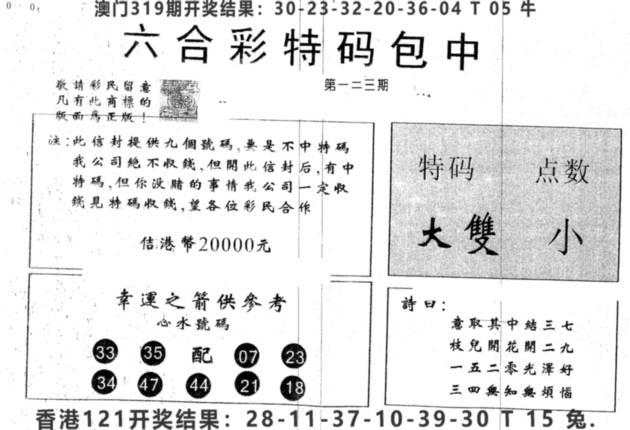 澳门319期开奖结果：30-23-32-20-36-04 T 05 牛
六合彩特码包中
第一二三期
敬請彩民留意
凡有此商標的
版面為正版！
注:此信封提供九個號碼,要是不中特碼
我公司絶不收錢,但開此信封后,有中
特碼,但你没賭的事情我公司一定收
錢見特碼收錢,望各位彩民合作
估港幣20000元
特码 点数
大雙 小
幸運之箭供參考
心水號碼
33 35 配 07 23
34 47 44 21 18
詩曰:
意取其中結三七
枝兒開花開二九
一五二零光澤好
三四無知無煩惱
香港121开奖结果：28-11-37-10-39-30 T 15 兔.